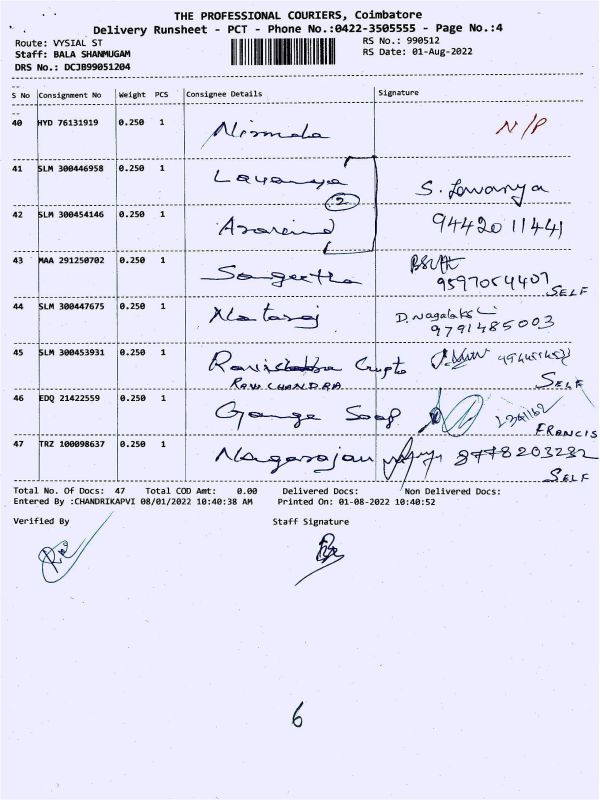 THE PROFESSIONAL COURIERS, Coimbatore
Delivery Runsheet - PCT - Phone No.:0422-3505555 - Page No.:4
Route: VYSIAL ST
RS No.: 990512
Staff: BALA SHANMUGAM
RS Date: 01-Aug-2022
DRS No.: DCJB99051204
S No Consignment No Weight PCS Consignee Details Signature
40 HYD 76131919 0.250 1 Nirmala N/P
41 SLM 300446958 0.250 1 Lavanya S. Lavanya
2
42 SLM 300454146 0.250 1 Aravind 9442011441
43 MAA 291250702 0.250 1 Sangeetha 9597054407 SELF
44 SLM 300447675 0.250 1 Nataraj D. Nagalaksh
9791485003
45 SLM 300453931 0.250 1 Ravichandra Gupta
RAVI CHANDRA SELF
46 EDQ 21422559 0.250 1 Ganga Soap
FRANCIS
47 TRZ 100098637 0.250 1 Nagarajan 8778203232
SELF
Total No. Of Docs: 47 Total COD Amt: 0.00 Delivered Docs: Non Delivered Docs:
Entered By :CHANDRIKAPVI 08/01/2022 10:40:38 AM Printed On: 01-08-2022 10:40:52
Verified By Staff Signature
6